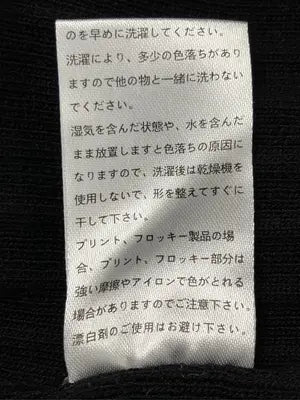 のを早めに洗濯してください。
洗濯により、多少の色落ちがあり
ますので他の物と一緒に洗わない
でください。
湿気を含んだ状態や、水を含んだ
まま放置しますと色落ちの原因に
なりますので、洗濯後は乾燥機を
使用しないで、形を整えてすぐに
干して下さい。
プリント、フロッキー製品の場
合、プリント、フロッキー部分は
強い摩擦やアイロンで色がとれる
場合がありますのでご注意下さい。
漂白剤のご使用はお避け下さい。